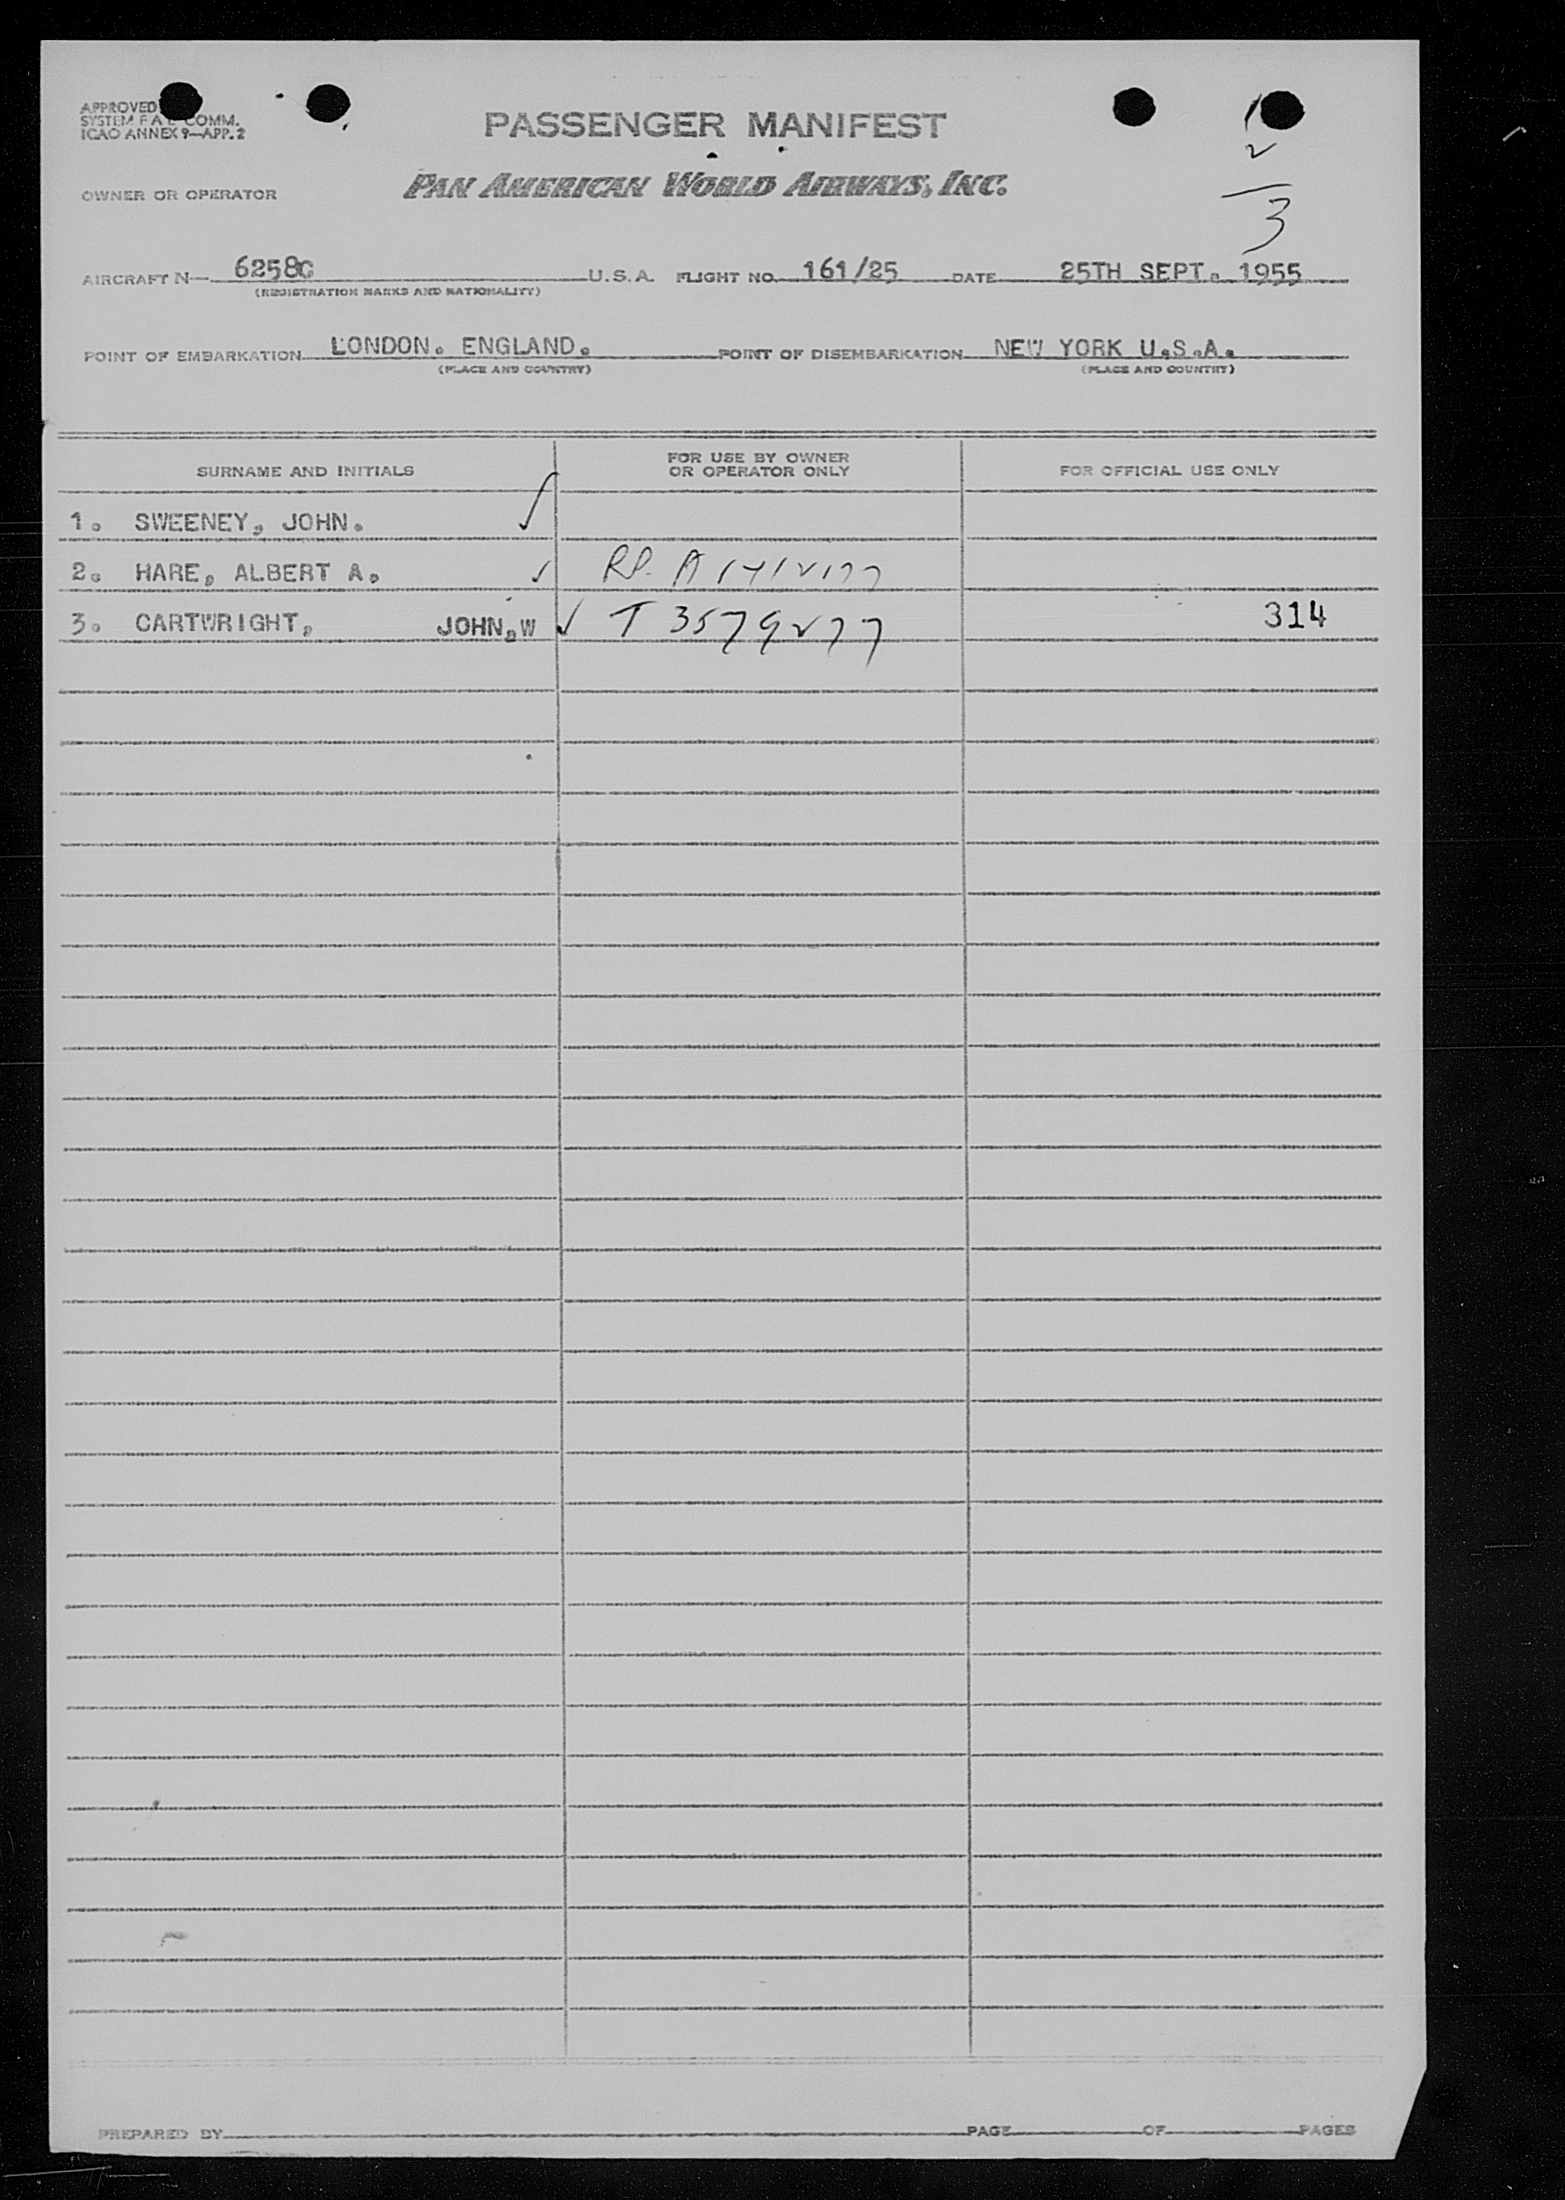 APPROVED
SYSTEM F A L COMM.
ICAO ANNEX 9—APP. 2
PASSENGER MANIFEST
1
2
3
OWNER OR OPERATOR PAN AMERICAN WORLD AIRWAYS, INC.
AIRCRAFT N— 6258C U.S.A. FLIGHT NO. 161/25 DATE 25TH SEPT. 1955
(REGISTRATION MARKS AND NATIONALITY)
POINT OF EMBARKATION LONDON. ENGLAND. POINT OF DISEMBARKATION NEW YORK U.S.A.
(PLACE AND COUNTRY) (PLACE AND COUNTRY)
SURNAME AND INITIALS FOR USE BY OWNER OR OPERATOR ONLY FOR OFFICIAL USE ONLY
1. SWEENEY, JOHN. ✓
2. HARE, ALBERT A. ✓ R.P. A
3. CARTWRIGHT, JOHN.W ✓ T 3579277 314
PREPARED BY PAGE OF PAGES